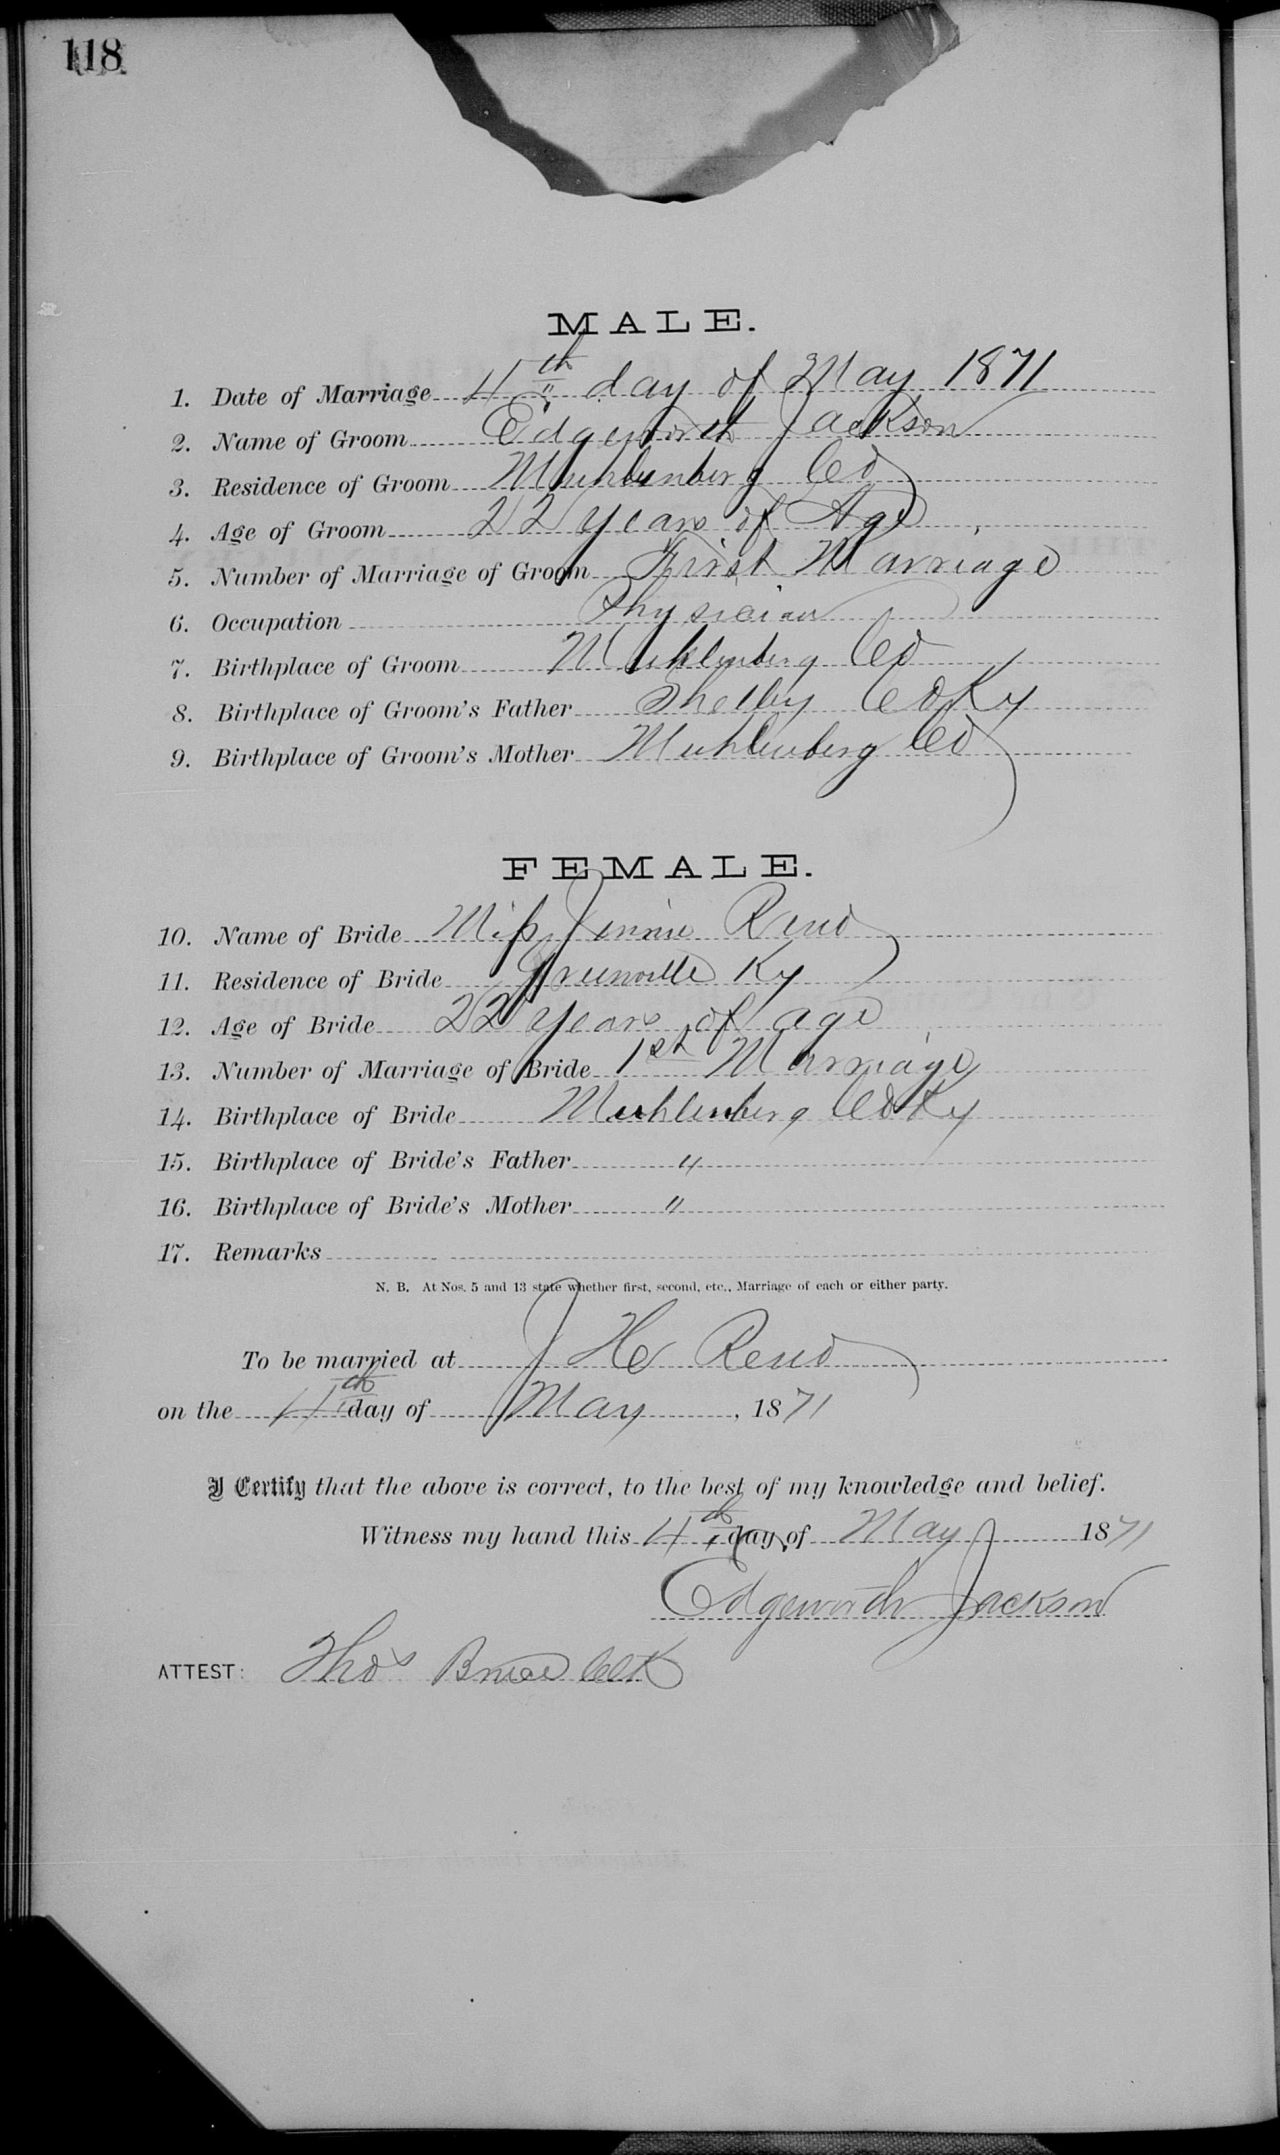 118
MALE.
1. Date of Marriage 4th day of May 1871
2. Name of Groom Edgeworth Jackson
3. Residence of Groom Muhlenberg Co
4. Age of Groom 22 years of Age
5. Number of Marriage of Groom First Marriage
6. Occupation Physician
7. Birthplace of Groom Muhlenberg Co
8. Birthplace of Groom's Father Shelby Co Ky
9. Birthplace of Groom's Mother Muhlenberg Co
FEMALE.
10. Name of Bride Miss Jennie Reno
11. Residence of Bride Greenville Ky
12. Age of Bride 22 years of age
13. Number of Marriage of Bride 1st Marriage
14. Birthplace of Bride Muhlenberg Co Ky
15. Birthplace of Bride's Father "
16. Birthplace of Bride's Mother "
17. Remarks
N. B. At Nos. 5 and 13 state whether first, second, etc., Marriage of each or either party.
To be married at J He Reno
on the 4th day of May, 1871
I Certify that the above is correct, to the best of my knowledge and belief.
Witness my hand this 4th day of May 1871
Edgeworth Jackson
ATTEST: Thos Bruce Clk